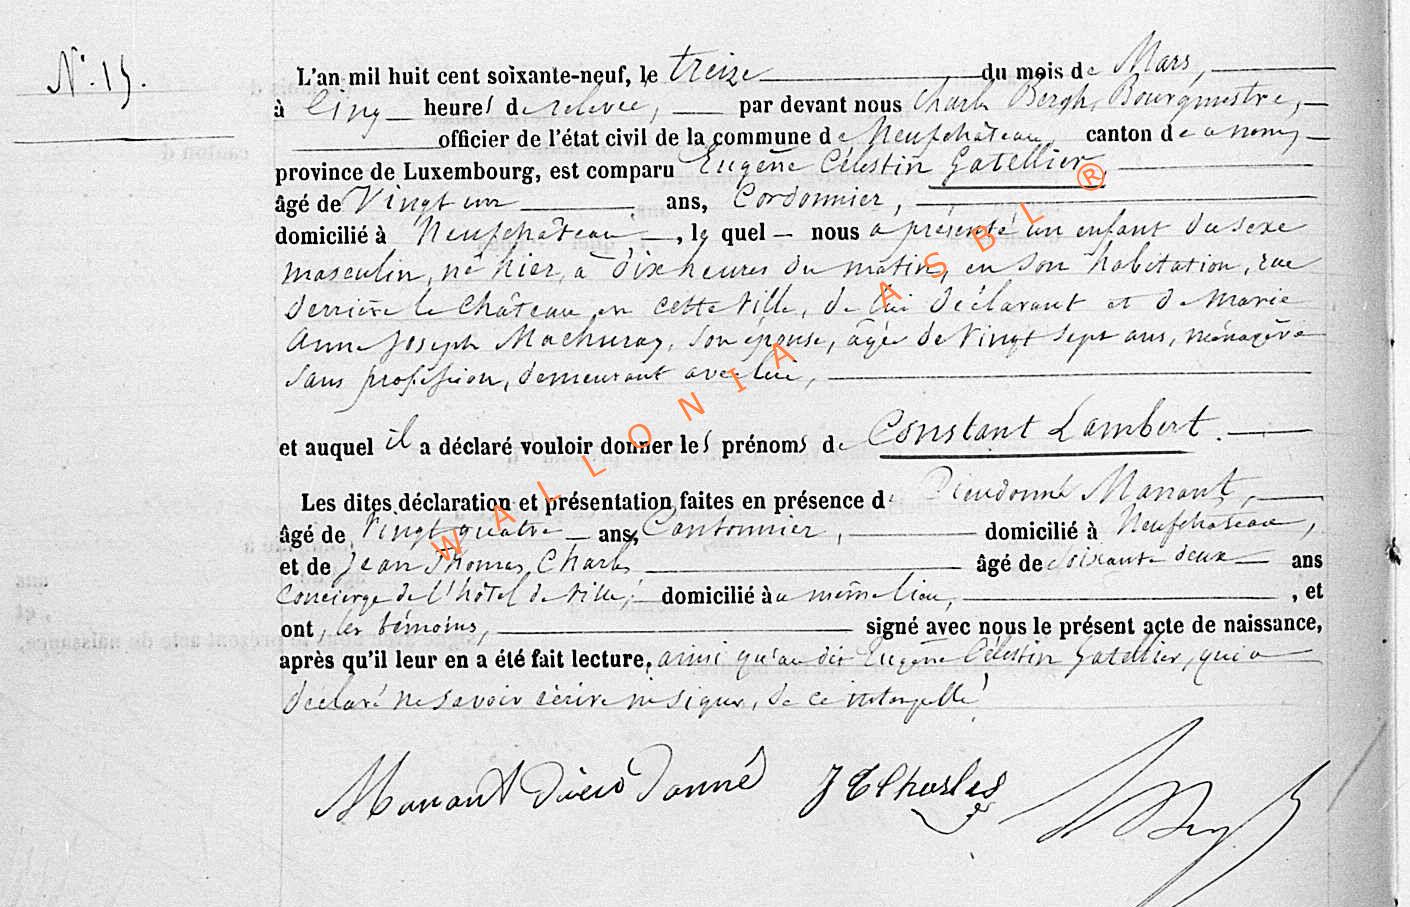 N.° 15.
L'an mil huit cent soixante-neuf, le treize du mois de Mars,
à Cinq heures de relevée, par devant nous Charles Bergh, Bourgmestre,
officier de l'état civil de la commune de Neufchâteau, canton de ce nom,
province de Luxembourg, est comparu Eugène Célestin Gatellier,
âgé de Vingt un ans, Cordonnier,
domicilié à Neufchâteau, lequel nous a présenté un enfant du sexe
masculin, né hier, à dix heures du matin, en son habitation, rue
derrière le Château en cette Ville, de lui déclarant et de Marie
Anne Joseph Machuray, son épouse, âgée de Vingt sept ans, ménagère
sans profession, demeurant avec lui,
et auquel il a déclaré vouloir donner les prénoms de Constant Lambert.
Les dites déclaration et présentation faites en présence de Dieudonné Manant,
âgé de Vingt quatre ans, Cantonnier, domicilié à Neufchâteau,
et de Jean Thomas Charles âgé de soixante deux ans
Concierge de l'hôtel de Ville, domicilié au même lieu, , et
ont, les témoins, signé avec nous le présent acte de naissance,
après qu'il leur en a été fait lecture, ainsi qu'au dit Eugène Célestin Gatellier, qui a
déclaré ne savoir écrire ni signer, de ce interpellé
Manant Dieudonné J T Charles
WALLONIA ASBL ®